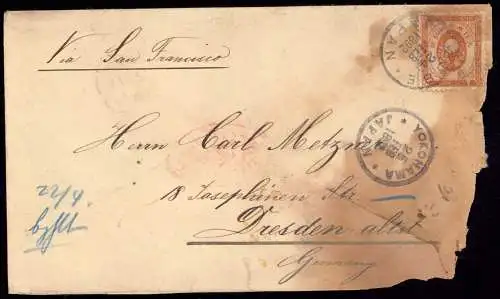 Via San Francisco
JAPAN
YOKOHAMA
JAPAN
Herrn Carl Metzner
18 Josephinen Str.
Dresden altst.
Germany
22/4